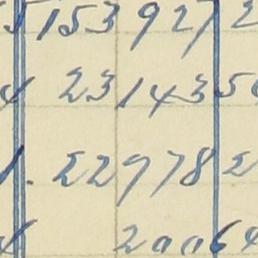 5 153927 2
4 23143 50
1. 22978 2
4 20064